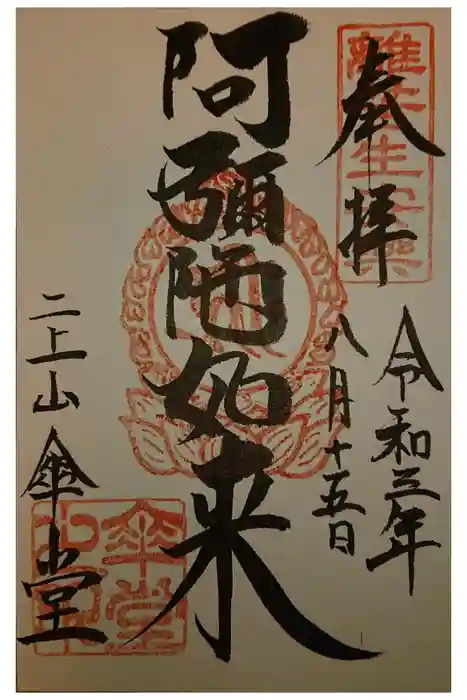 奉拝
令和三年
八月十五日
阿彌陀如来
二上山傘堂
傘堂